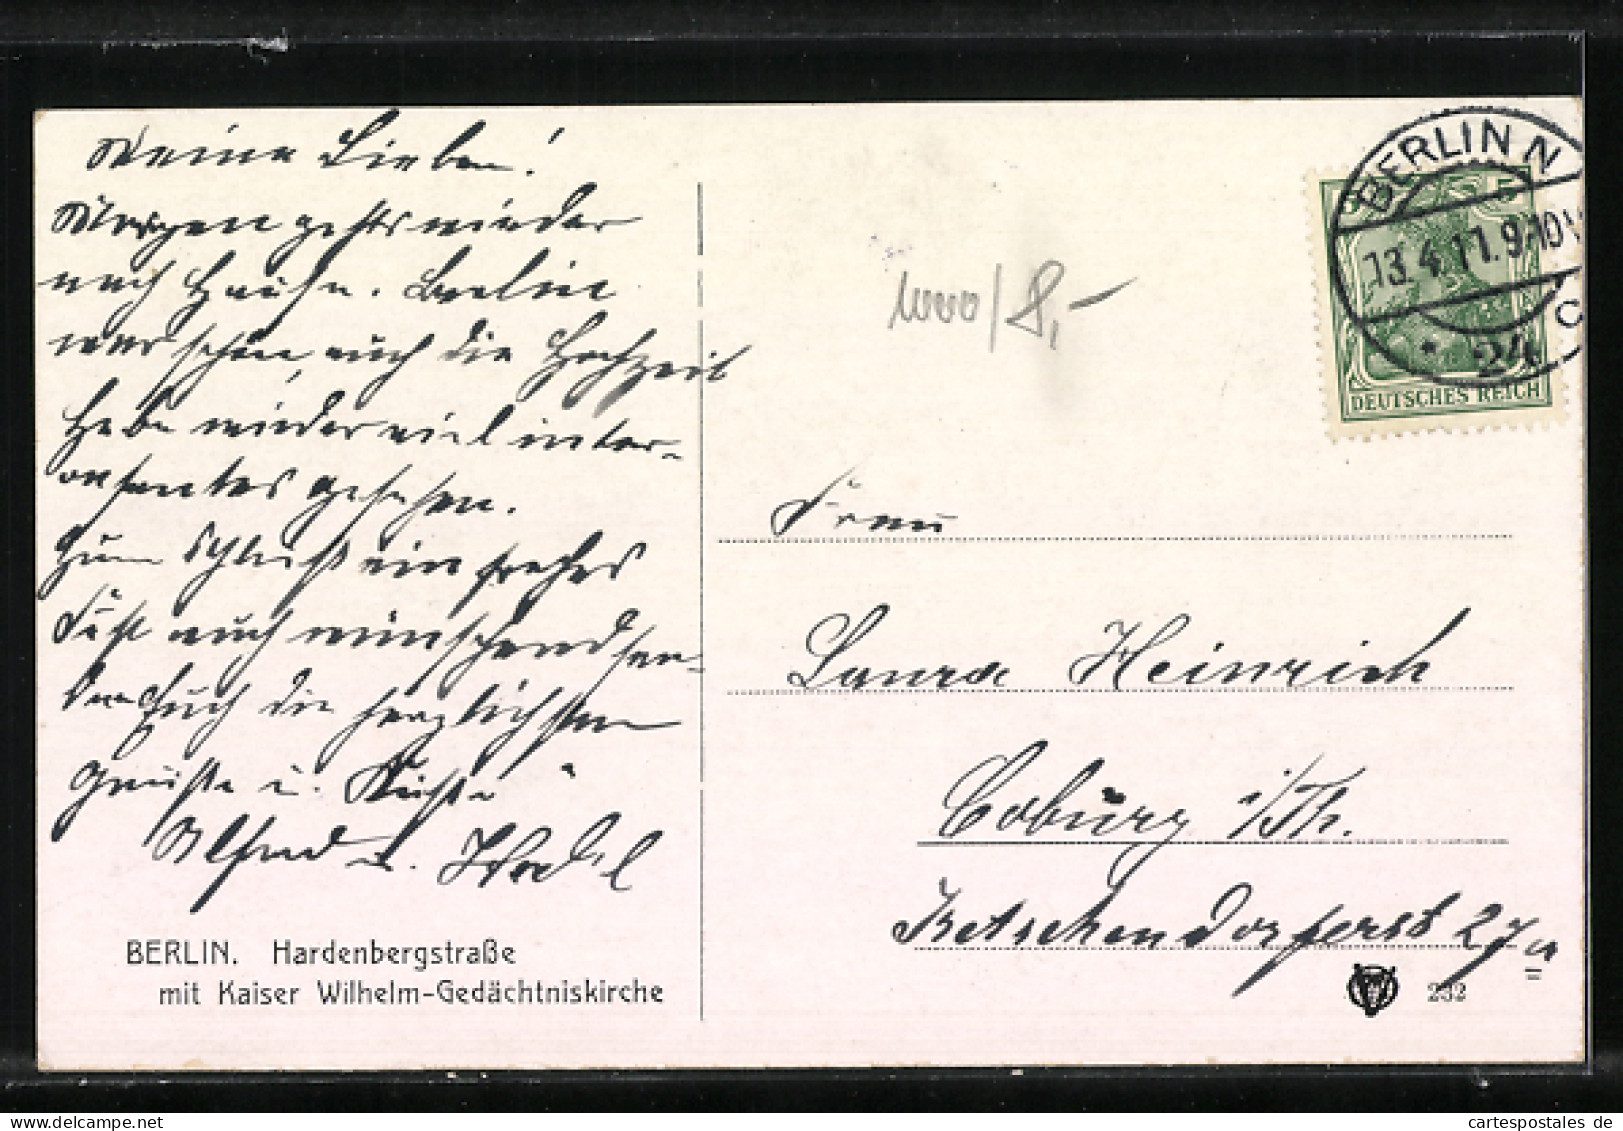 Meine Lieben!
Morgen gehts wieder
nach Hause. Berlin
war schön, auch die Hochzeit
Habe wieder viel inter-
essantes gesehen.
Zum Schluß ein frohes
Fest auch wünschend sen-
den Euch die herzlichsten
Grüße u. Küsse
Alfred u.
BERLIN. Hardenbergstraße
mit Kaiser Wilhelm-Gedächtniskirche
BERLIN N
13.4.11.9-10V
* 24 c
5
DEUTSCHES REICH
8,-
Frau
Laura Heinrich
Coburg i/Th.
Ketschendorferst 27a
232
cartespostales de